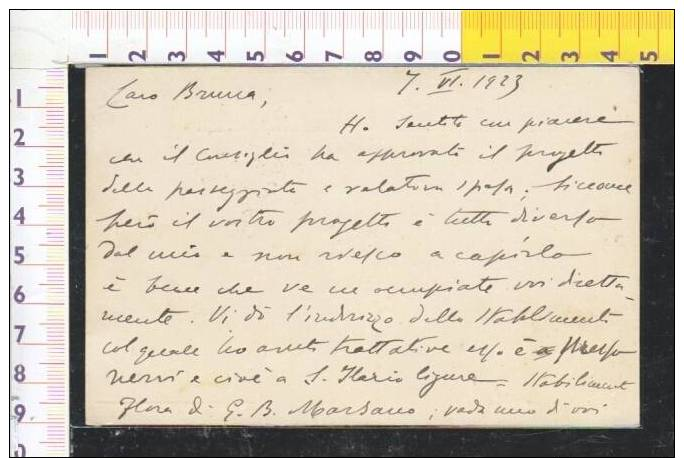 1 2 3 4 5 6 7 8 9 0 1 2 3 4 5
1
2
3
4
5
6
7
8
9
0
7. VI. 1923
Caro Bruna,
Ho sentito con piacere
che il Consiglio ha approvato il progetto
della passeggiata e relativa spesa; siccome
però il vostro progetto è tutto diverso
dal mio e non riesco a capirlo
è bene che ve ne occupiate voi diretta-
mente. Vi dò l'indirizzo dello Stabilimento
col quale ho avuto trattative esso è presso
Nervi e cioè a S. Ilario Ligure = Stabiliment
Flora di G. B. Marsano; vada uno di voi